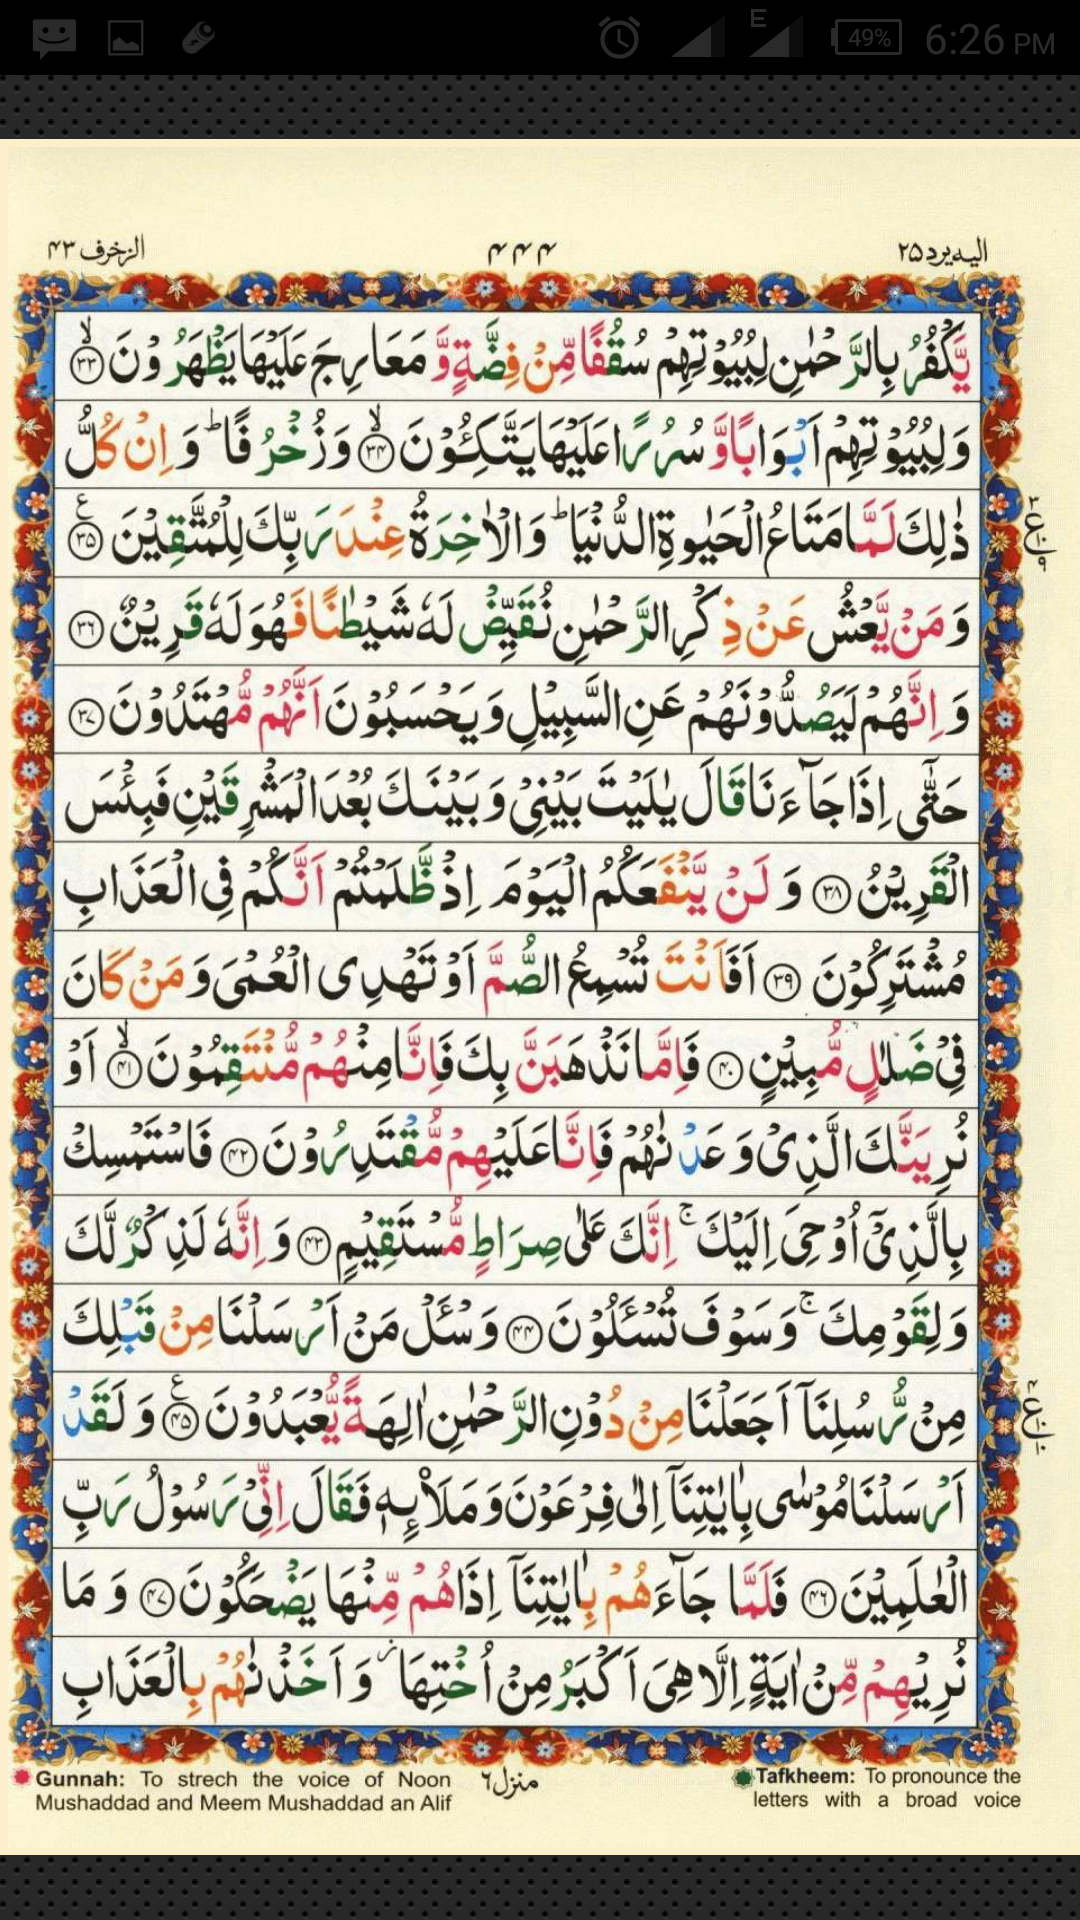 6:26 PM
E
49%
اليه يرد ٢٥
٤٤٤
الزخرف ٤٣
يَّكْفُرُ بِالرَّحْمٰنِ لِبُيُوْتِهِمْ سُقُفًا مِّنْ فِضَّةٍ وَّ مَعَارِجَ عَلَيْهَا يَظْهَرُوْنَ ۙ﴿٣٣﴾
وَ لِبُيُوْتِهِمْ اَبْوَابًا وَّ سُرُرًا عَلَيْهَا يَتَّكِـُٔوْنَ ۙ﴿٣٤﴾ وَ زُخْرُفًا ؕ وَ اِنْ كُلُّ
ذٰلِكَ لَمَّا مَتَاعُ الْحَيٰوةِ الدُّنْيَا ؕ وَ الْاٰخِرَةُ عِنْدَ رَبِّكَ لِلْمُتَّقِيْنَ ﴿٣٥﴾ ع
وَ مَنْ يَّعْشُ عَنْ ذِكْرِ الرَّحْمٰنِ نُقَيِّضْ لَهٗ شَيْطٰنًا فَهُوَ لَهٗ قَرِيْنٌ ﴿٣٦﴾
وَ اِنَّهُمْ لَيَصُدُّوْنَهُمْ عَنِ السَّبِيْلِ وَ يَحْسَبُوْنَ اَنَّهُمْ مُّهْتَدُوْنَ ﴿٣٧﴾
حَتّٰۤى اِذَا جَآءَنَا قَالَ يٰلَيْتَ بَيْنِيْ وَ بَيْنَكَ بُعْدَ الْمَشْرِقَيْنِ فَبِئْسَ
الْقَرِيْنُ ﴿٣٨﴾ وَ لَنْ يَّنْفَعَكُمُ الْيَوْمَ اِذْ ظَّلَمْتُمْ اَنَّكُمْ فِي الْعَذَابِ
مُشْتَرِكُوْنَ ﴿٣٩﴾ اَفَاَنْتَ تُسْمِعُ الصُّمَّ اَوْ تَهْدِى الْعُمْيَ وَ مَنْ كَانَ
فِيْ ضَلٰلٍ مُّبِيْنٍ ﴿٤٠﴾ فَاِمَّا نَذْهَبَنَّ بِكَ فَاِنَّا مِنْهُمْ مُّنْتَقِمُوْنَ ۙ﴿٤١﴾ اَوْ
نُرِيَنَّكَ الَّذِيْ وَعَدْنٰهُمْ فَاِنَّا عَلَيْهِمْ مُّقْتَدِرُوْنَ ﴿٤٢﴾ فَاسْتَمْسِكْ
بِالَّذِيْۤ اُوْحِيَ اِلَيْكَ ۚ اِنَّكَ عَلٰى صِرَاطٍ مُّسْتَقِيْمٍ ﴿٤٣﴾ وَ اِنَّهٗ لَذِكْرٌ لَّكَ
وَ لِقَوْمِكَ ۚ وَ سَوْفَ تُسْـَٔلُوْنَ ﴿٤٤﴾ وَ سْـَٔلْ مَنْ اَرْسَلْنَا مِنْ قَبْلِكَ
مِنْ رُّسُلِنَاۤ اَجَعَلْنَا مِنْ دُوْنِ الرَّحْمٰنِ اٰلِهَةً يُّعْبَدُوْنَ ﴿٤٥﴾ ع وَ لَقَدْ
اَرْسَلْنَا مُوْسٰى بِاٰيٰتِنَاۤ اِلٰى فِرْعَوْنَ وَ مَلَا۟ئِهٖ فَقَالَ اِنِّيْ رَسُوْلُ رَبِّ
الْعٰلَمِيْنَ ﴿٤٦﴾ فَلَمَّا جَآءَهُمْ بِاٰيٰتِنَاۤ اِذَا هُمْ مِّنْهَا يَضْحَكُوْنَ ﴿٤٧﴾ وَ مَا
نُرِيْهِمْ مِّنْ اٰيَةٍ اِلَّا هِيَ اَكْبَرُ مِنْ اُخْتِهَا ؗ وَ اَخَذْنٰهُمْ بِالْعَذَابِ
٣ ع ١٠ ٩
٤ ع ١٠ ١٠
Gunnah: To strech the voice of Noon
Mushaddad and Meem Mushaddad an Alif
منزل ٦
Tafkheem: To pronounce the
letters with a broad voice